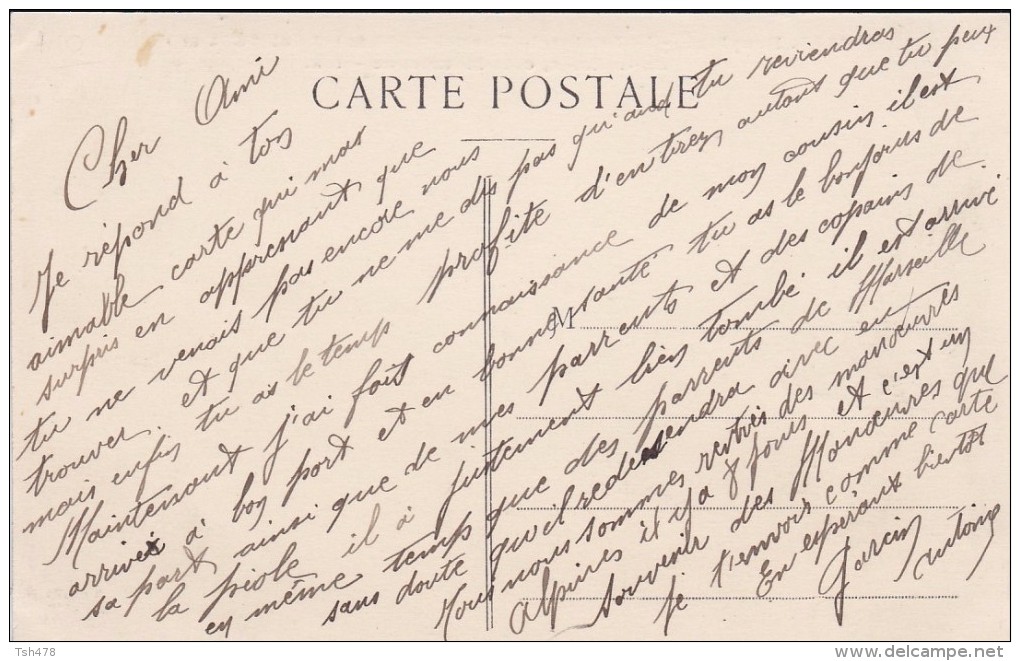 CARTE POSTALE
M
Cher Ami
Je répond à ton
aimable carte qui mas
surpris en apprenant que
tu ne venais pas encore nous
trouver. et que tu ne me dis pas qu'and tu reviendras
mais enfin tu as le temps profite d'entrez autant que tu peux
Maintenant j'ai fait connaissance de mon cousin il est
arrivé à bon port et en bonne santé tu as le bonjours de
sa part ainsi que de mes parrents et des copains de
la piole il à justement bien tombé il est arrivé
en même temps que des parrents de Marseille
sans doute qu'il redensendra avec eux
Nous nous sommes rentrés des manoeuvres
Alpines il y a 8 jours et c'est un
souvenir des Manoeuvres que
je t'envoir comme carte
En espérant bientôt
Garcin
Antoine
Tsh478
www.delcampe.net